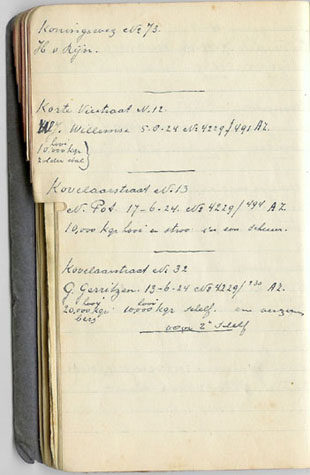 Koningsweg No 73.
H. v Rijn.
Korte Viestraat N. 12.
J. Willemse 5-8-24 No 4229/491 AZ.
hooi
10.000 kgr
zolder stal
Kovelaarstraat No. 13
N. Pot. 17-6-24. No 4229/494 AZ
10,000 kgr hooi en stroo in een schuur.
Kovelaarstraat No. 32
G. Gerritzen. 13-6-24 No 4229/ AZ.
hooi hooi
20,000 kgr 10000 kgr schelf. en
berg
voor 2e schelf